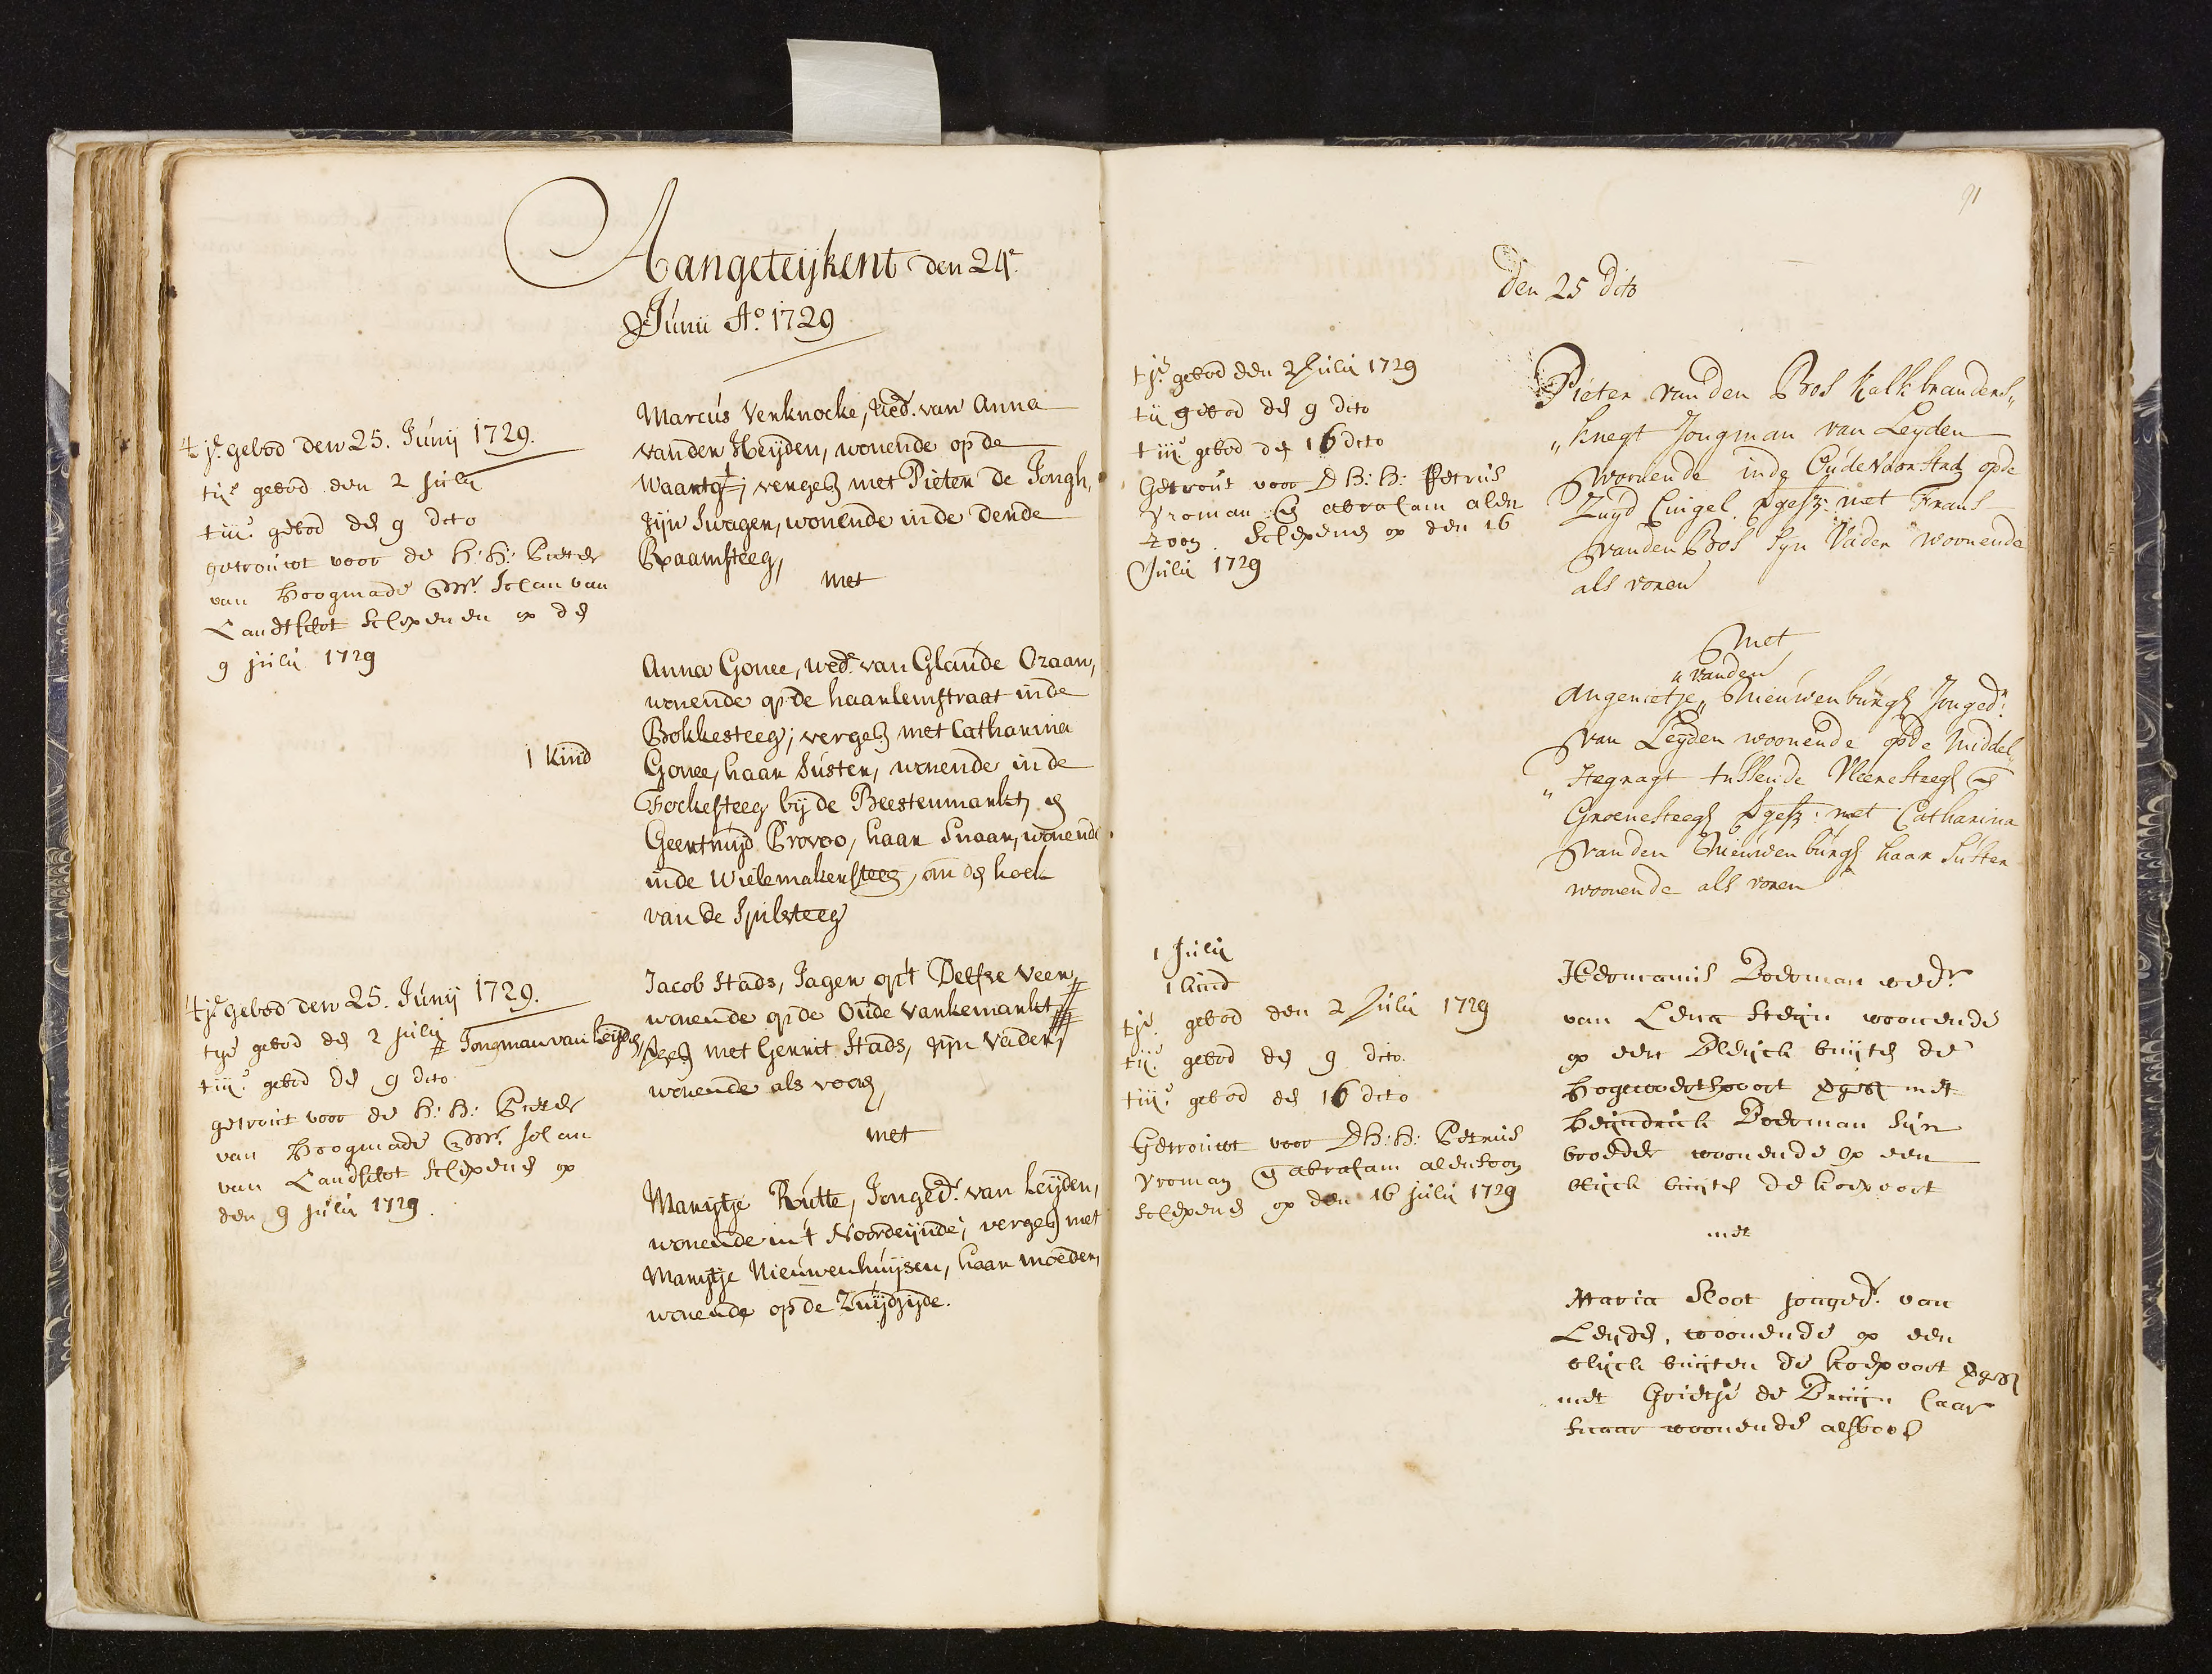 Aangeteijkent den 24e
Junii Ao. 1729
t je. gebod den 25. Junij 1729.
t ije gebod den 2 julij
t iije gebod den 9 dito
getrouwt voor de H: H: Pieter
van Hoogmade en Mr. Johan van
Landtschot Schepenen op den
9 julij 1729
Marcus Verknocke, wedr. van Anna
vander Heijden, wonende op de
Waartgt; vergeh met Pieter de Jongh,
zijn Swager, wonende inde derde
Raamsteeg,
met
Anna Gonee, wede. van Glaude Ozaan,
wonende op de haarlemstraat inde
Bokkesteeg; vergeh met Catharina
1 kind
Gonee, haar Suster, wonende inde
Fockesteeg bij de Beestenmarkt, en
Geertruijd Provoo, haar Snaar, wonende
inde Wielemakersteeg, an de hoek
van de Spilsteeg
t je gebod den 25. Junij 1729.
t ije gebod den 2 julij
# Jongman van Leijden,
t iije gebod den 9 dito
getrout voor de H: H: Pieter
van Hoogmade en Mr. Johan
van Landschot Schepenen op
den 9 julij 1729.
Jacob Stads, Jager op't Delfse Veer,#
wonende op de Oude Varkemarkt,
vergeh met Gerrit Stads, zijn Vader,
wonende als voor,
met
Marijtje Rutte, Jonged. van Leijden,
wonende in 't Noordeijnde; vergeh met
Marijtje Nieuwenhuijsen, haar moeder,
wonende op de Zuijdzijde.
91
den 25 dito
t je. gebod den 2 Julij 1729
t ij gebod den 9 dito
t iije. gebod den 16 dito
Getrout voor D H: H: Petrus
Vroman en abraham alden
zoon Schepenen op den 16
Julij 1729
Pieter vanden Bos kalkbranders„
„knegt Jongman van Leyden
woonende inde Oude Voorstad opde
Zuyd Cingel vgesz: met Frans
vanden Bos syn Vader woonende
als voren
met
„vanden
Angenietje„ Nieuwenburgh Jonged:
van Leyden woonende opde Middel„
„stegragt tussende Vleersteegh en
Groenesteegh vgesz: met Catharina
vanden Nieuwenburgh haar Suster
woonende als voren
1 Julij
1 kind
t je. gebod den 2 Julij 1729
t ije. gebod den 9 dito.
t iije. gebod den 16 dito
Getrouwt voor D H: H: Petrus
Vroman en abraham aldensoon
schepenen op den 16 julij 1729
Hermanus Boerman wedr.
van Lena Steijn woonende
op een Bleijck buijten de
Hogewoertspoort vgesz met
Heijndrick Boerman Sijn
broeder woonende op een
blijck buijten de koepoort
met
Maria Sloot jonged. van
Leijden, woonende op een
blijck buijten de koepoort vgesz
met Grietje de Bruijn haar
snaar woonende als voor